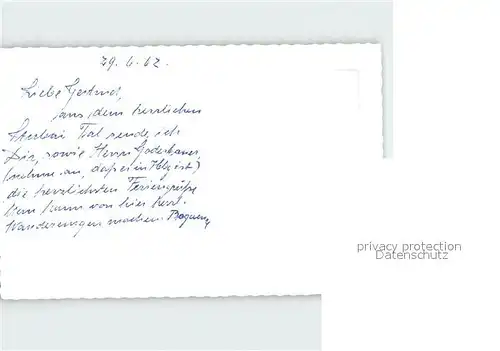 29.6.62.
Liebe Gertrud,
aus dem herrlichen
Tal sende ich
Dir, sowie Herrn
(nehme an, daß er in Hbg ist)
die herzlichsten Feriengrüße
Man kann von hier herrl.
Wanderungen machen.
privacy protection
Datenschutz